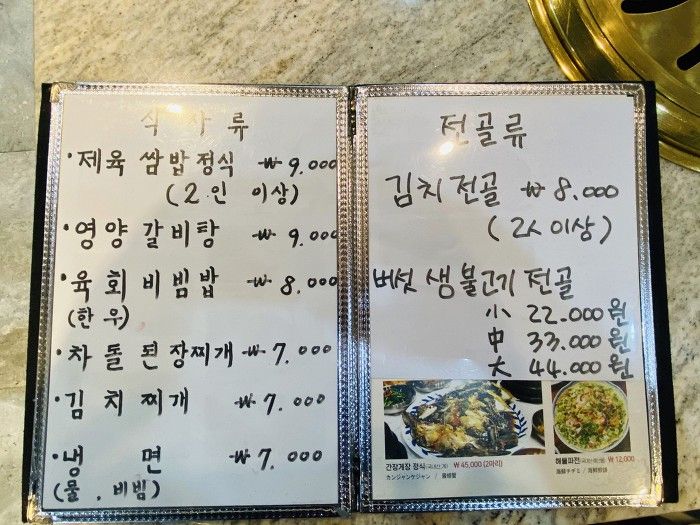 식 사 류
· 제육 쌈밥정식 ₩ 9.000
(2인 이상)
· 영양 갈비탕 ₩ 9,000
· 육회비빔밥 ₩ 8.000
(한우)
· 차돌된장찌개 ₩ 7.000
· 김치찌개 ₩ 7.000
· 냉 면 ₩ 7,000
(물, 비빔)
전골류
김치전골 ₩ 8.000
(2人 이상)
버섯 생불고기 전골
小 22.000원
中 33.000원
大 44.000원
간장게장 정식(국내산/게) ₩ 45,000 (2마리)
カンジャンケジャン / 酱螃蟹
해물파전(국내산 해산물) ₩ 12,000
海鮮チヂミ / 海鲜煎饼